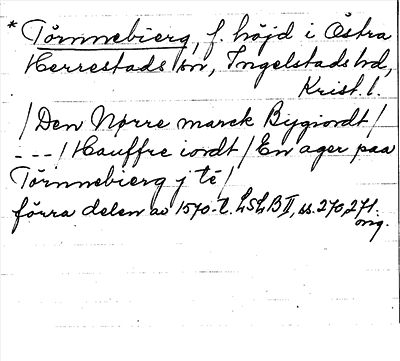 * Törnnebierg, f. höjd i Östra
Herrestads sn, Ingelstads hd,
Krist. l.
/Den Nørre marck Bygiordt/
---/Hauffre iordt/En ager paa
Törnnebierg j té/
förra delen av 1570-t. LSLB II, ss. 270, 271.
orig.